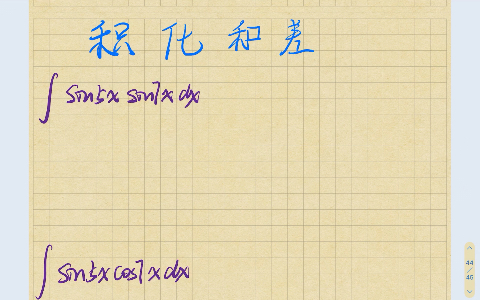 积化和差
∫ sin5x sin7x dx
∫ sin5x cos7x dx
44
45